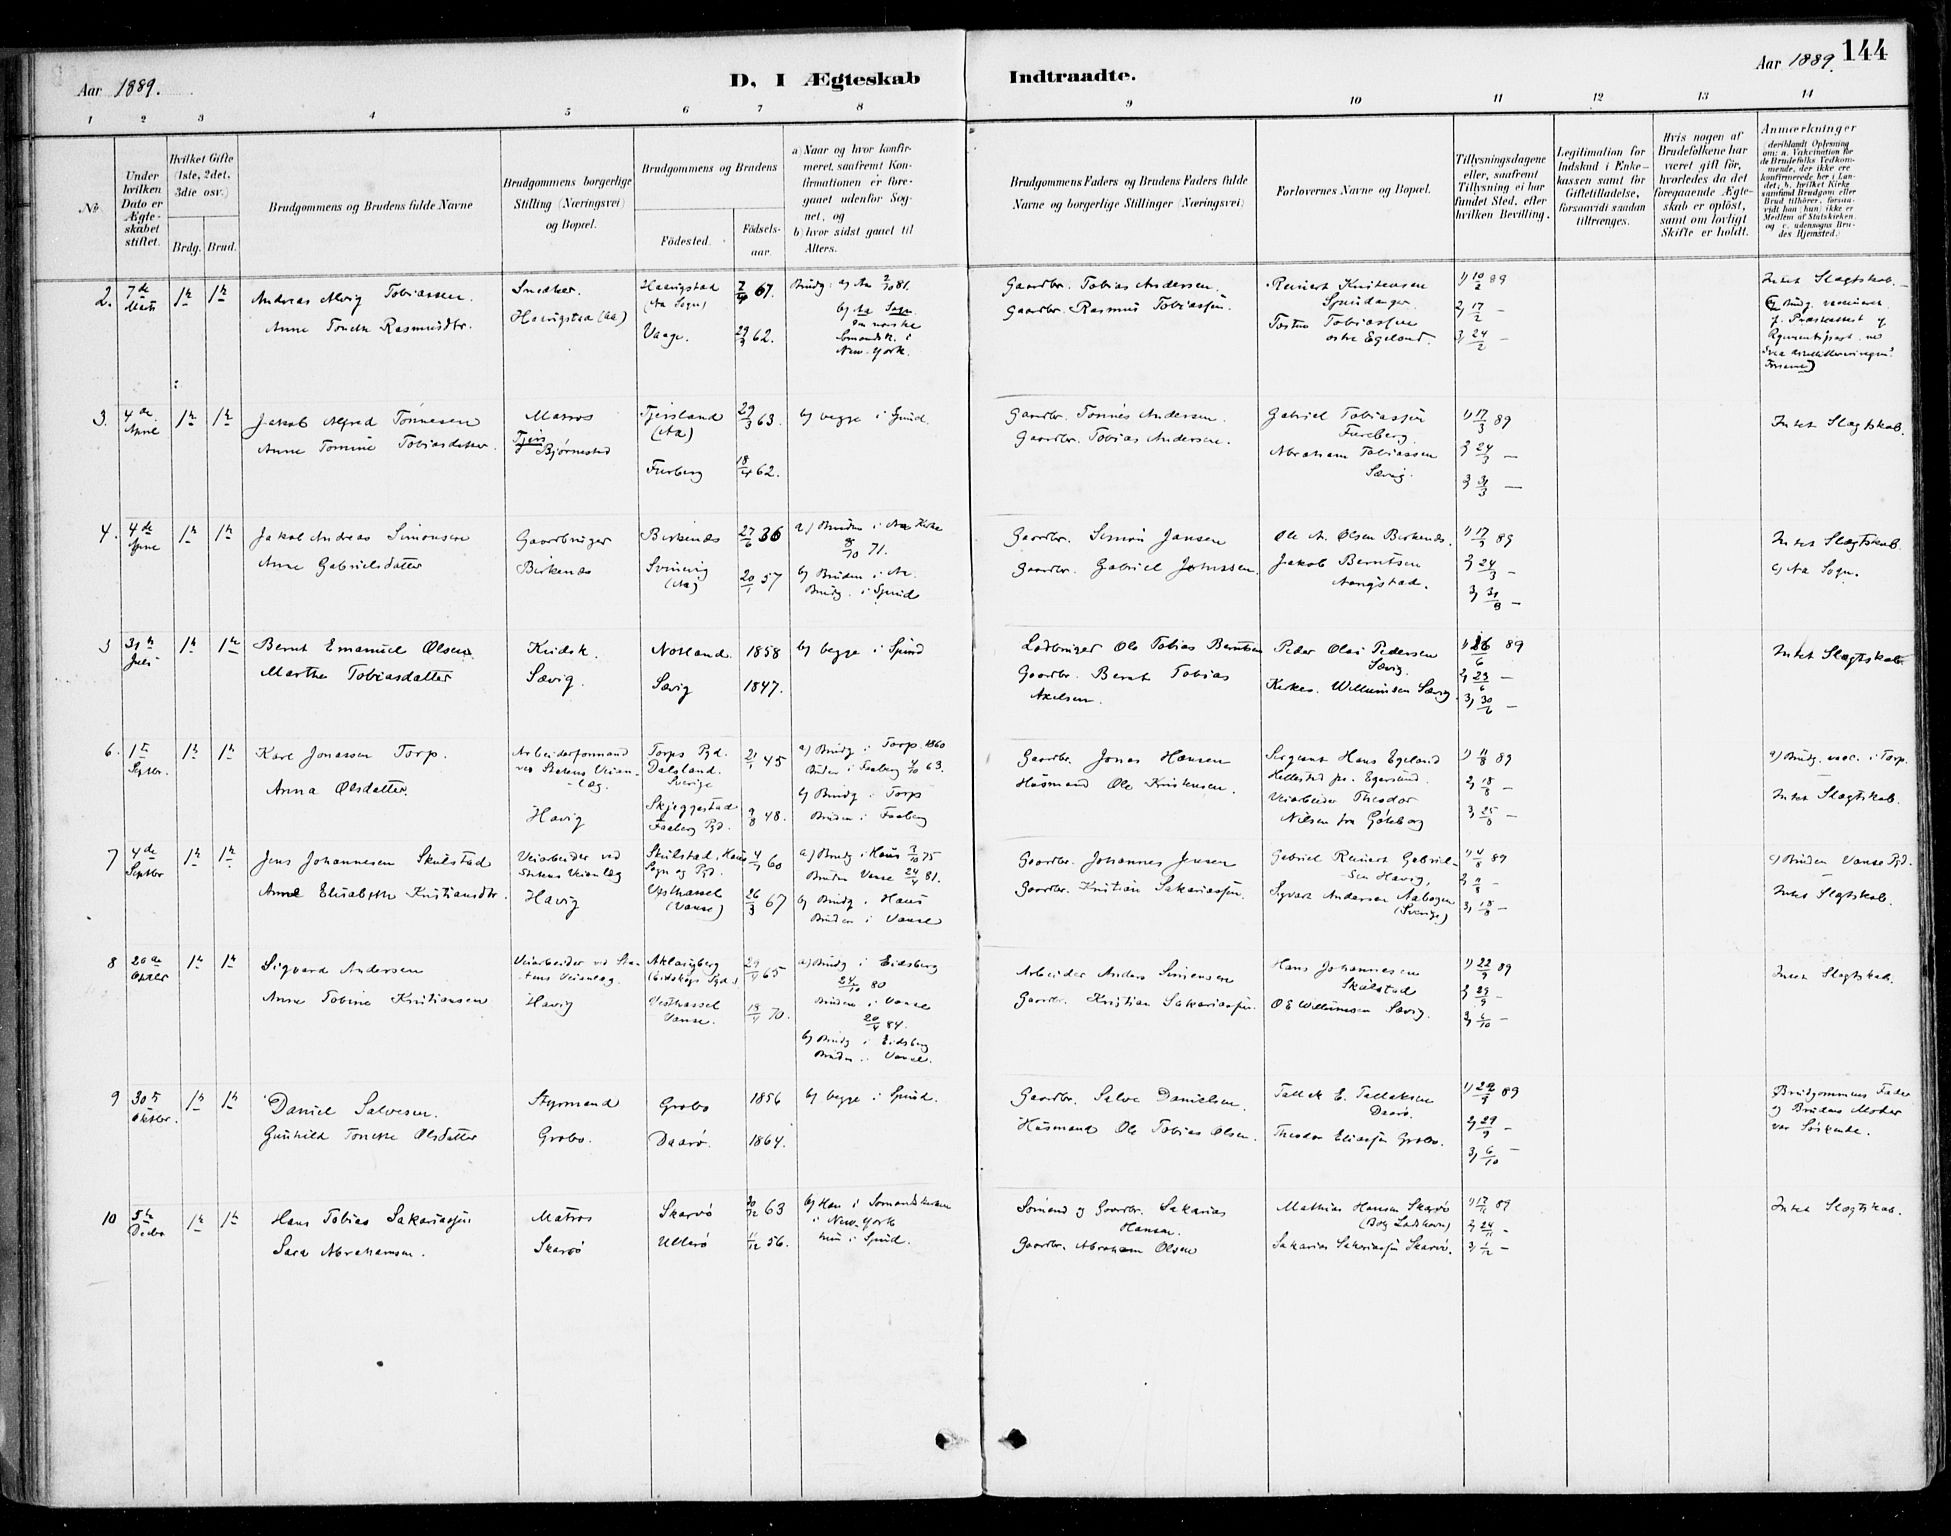 144
Aar 1889.
D, I Ægteskab Indtraadte.
Aar 1889.
1 2 3 4 5 6 7 8 9 10 11 12 13 14
No.
Under hvilken Dato er Ægteskabet stiftet.
Hvilket Gifte (1ste, 2det, 3die osv.)
Brdg. Brud.
Brudgommens og Brudens fulde Navne
Brudgommens borgerlige Stilling (Næringsvei) og Bopæl.
Brudgommens og Brudens
Fødested.
Fødsels-aar.
a) Naar og hvor konfirmeret, saafremt Konfirmationen er foregaaet udenfor Sognet, og
b) hvor sidst gaaet til Alters.
Brudgommens Faders og Brudens Faders fulde Navne og borgerlige Stillinger (Næringsvei)
Forlovernes Navne og Bopæl.
Tillysningsdagene eller, saafremt Tillysning ei har fundet Sted, efter hvilken Bevilling.
Legitimation for Indskud i Enkekassen samt for Giftetilladelse, forsaavidt saadan tiltrænges.
Hvis nogen af Brudefolkene har været gift før, hvorledes da det foregaaende Ægteskab er opløst, samt om lovligt Skifte er holdt.
Anmærkninger
(deriblandt Oplysning om: a. Vakcination for de Brudefolks Vedkommende, der ikke ere konfirmerede her i Landet; b. hvilket Kirkesamfund Brudgom eller Brud tilhører, forsaavidt han (hun) ikke er Medlem af Statskirken, og c. udensogns Brudes Hjemsted.)
2. 7de Marts 1ste 1ste
Andreas Alvig Tobiassen.
Anne Tonette Rasmusdtr.
Snedker.
Haangstad (Aa)
Haangstad (Aa Sogn) 67.
Vaage. 29/3 62.
Brudg: a) Aa 2/10 81.
b) Aa Sogn
den norske Sømandsk. i New-York.
Gaardbr. Tobias Andersen.
Gaardbr. Rasmus Tobiassen.
Reinert Kristensen
Spindanger
Tobiassen
østre Egeland.
1) 10/2 89
2) 17/2 —
3) 24/2 —
Intet Slægtskab.
3. 4de April 1ste 1ste
Jakob Alfred Tønnesen
Anne Tomine Tobiasdatter.
Matros
Bjørnestad
Tjersland (Aa) 29/3 63.
Furberg 18/4 62.
b) begge i Spind.
Gaardbr. Tønnes Andersen.
Gaardbr. Tobias Andersen.
Gabriel Tobiassen
Fureberg.
Abraham Tobiassen
Sævig.
1) 17/3 89
2) 24/3 —
3) 31/3 —
Intet Slægtskab.
4. 4de April 1ste 1ste
Jakob Andreas Simonsen
Anne Gabrielsdatter
Gaardbruger
Birkenes
Birkenes 27/6 36
Svinnig (Aa) 20/1 57
a) Bruden i Aa Kirke 8/10 71.
b) Bruden i Aa.
Brudg. i Spind
Gaardbr. Simon Jansen
Gaardbr. Gabriel Johnssen.
Ole A. Olsen Birkenes.
Jakob Berntsen
Aangstad.
1) 17/3 89
2) 24/3 —
3) 31/3 —
Intet Slægtskab.
c) Aa Sogn.
5 31te Juli 1ste 1ste
Bernt Emanuel Olsen
Marthe Tobiasdatter
Sævig.
1858
Sævig 1847.
b) begge i Spind
Ole Tobias Berntsen
Gaardbr. Bernt Tobias
Axelsen.
Peder Olai Pedersen
Sævig.
Willumsen Sævig.
1) 16/6 89
2) 23/6 —
3) 30/6 —
Intet Slægtskab
6. 1ste Septbr. 1ste 1ste
Karl Jonassen Torp.
Anna Olsdatter.
Arbeiderformand
ved Statens Veian-
læg.
Havig
Torps Pgd.
Dalsland.
Sverige 21/1 45
Skjeggestad
Faaberg Pgd. 9/8 48.
a) Brudg. i Torp. 1860
Bruden i Faaberg 4/10 63.
b) Brudg i Torp
Bruden i Faaberg
Gaardbr. Jonas Hansen
Husmand Ole Kristensen.
Sergeant Hans Egeland
Hellestad pr. Egersund.
Veiarbeider Theodor
Nilsen fra Gøteborg
1) 11/8 89
2) 18/8 —
3) 25/8 —
a) Brudg. vacc. i Torp.
Intet Slægtskab.
7 4de Septbr 1ste 1ste
Jens Johannesen Skulstad
Anne Elisabeth Kristiansdtr.
Veiarbeider ved
Statens Veianlæg
Havig
Skulstad, Haus
Sogn og Pgd. 4/7 60
Vesthassel
(Vanse) 26/3 67
a) Brudg i Haus 3/10 75
Bruden Vanse 24/4 81.
b) Brudg. i Haus
Bruden i Vanse
Gaardbr. Johannes Jensen
Gaardbr. Kristian Sakariassen.
Gabriel Reinert Gabriel-
sen Havig,
Sigvart Andersen Aabogen
(Sverige)
1) 4/8 89
2) 11/8 —
3) 18/8 —
c) Bruden Vanse Pgd.
Intet Slægtskab.
8 20de Oktbr 1ste 1ste
Sigvard Andersen
Anne Tobine Kristiansen
Veiarbeider ved Sta-
tens Veianlæg.
Havig
65
Vesthassel
Vanse. 70.
a) Brudg i Eidsberg
24/10 80
Bruden i Vanse
20/4 84.
b) Brudg i Eidsberg
Bruden i Vanse.
Arbeider Anders Simensen
Gaardbr. Kristian Sakariassen.
Hans Johannesen
Skulstad
O E Willumsen Sævig.
1) 22/9 89
2) 29/9 —
3) 6/10 —
Intet Slægtskab.
9 30te Oktbr. 1ste 1ste
Daniel Salvesen.
Gunhild Tonette Olsdatter
Styrmand
Grobo.
Grobo 1856
Daarø. 1864.
b) begge i Spind.
Gaardbr. Salve Danielsen.
Husmand Ole Tobias Olsen.
Tallak E. Tallaksen
Daarø.
Theodor Eliassen Grobo.
1) 22/9 89
2) 29/9 —
3) 6/10 —
Brudgommens Fader
og Brudens Moder
var Søskende.
10 5te Decbr 1ste 1ste
Hans Tobias Sakariassen
Sara Abrahamsen.
Matros
Skarvø
Skarvø 63
Ullerø 11/12 56.
b) Han i Sømandskirken
i New-York
hun i Spind.
Sømand og Gaardbr. Sakarias
Hansen.
Gaardbr. Abraham Olsen
Mathias Hansen Skarvø
(Bolig Ladshavn)
Sakarias Sakariassen Skarvø.
1) 17/11 89
2) 24/11 —
3) 1/12 —
Intet Slægtskab.